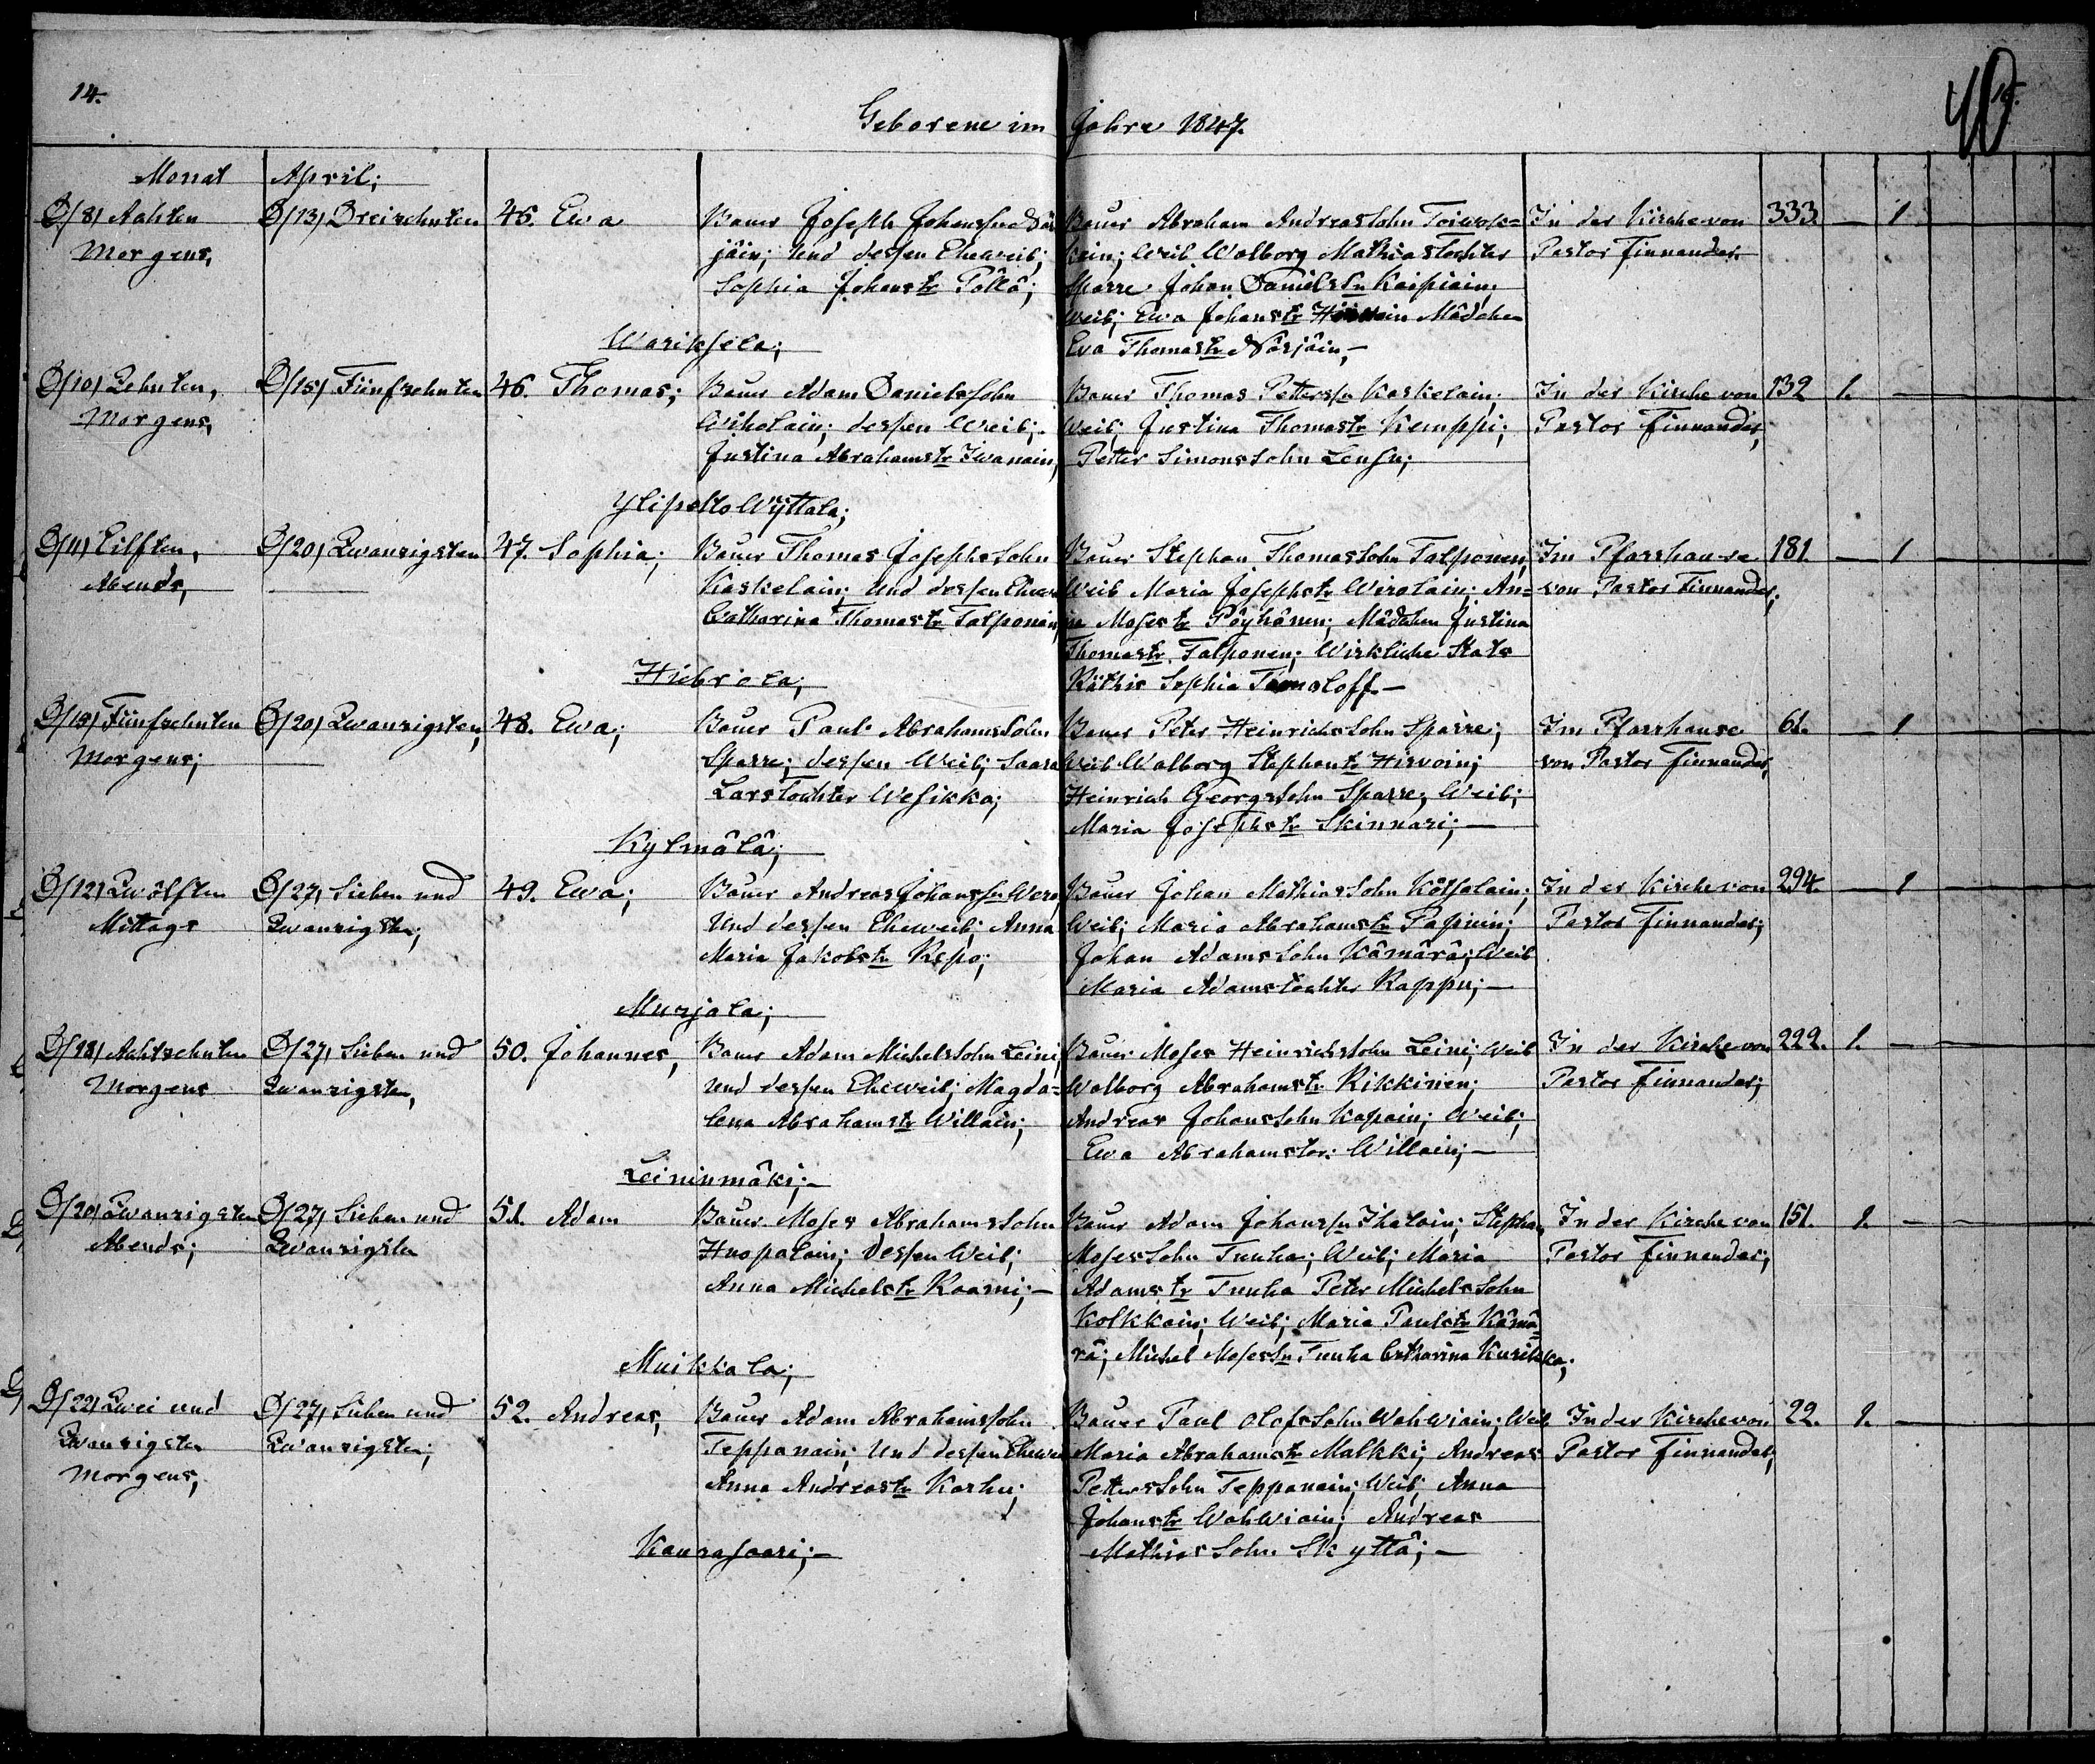 14.
Geborene im Jahre 1847.
40
15.
Monat April;
D/8/ Achten D/13/ Dreizehnten 46. Ewa Bauer Joseph Johanssn Bauer Abraham Andreassohn Toiwok= In der Kirche von 333. — 1
Morgens, jäin; Und dessen Eheweib; kein; Weib Walborg Mathiastochter Pastor Finnander
Sophia Johanstr Pöllä; Sparre Johan Danielssn Kaipiain;
Weib; Ewa Johanstr Mädchen
Wariksela; Eva Thomastr Näsjäin; —
D/10/ Zehnten, D/15/ Fünfzehnten 46. Thomas; Bauer Adam Danielssohn Bauer Thomas Petterssn Kaskelain; In der Kirche von 132 1. —
Morgens, Wiholain; dessen Weib; Weib; Justina Thomastr Kemppi; Pastor Finnander,
Justina Abrahamstr Iwanain, Petter Simonssohn Lensu;
Ylipelto Wyttala;
D/11/ Eilften, D/20/ Zwanzigsten 47. Sophia; Bauer Thomas Josephssohn Bauer Stephan Thomassohn Talponen, Im Pfarrhause 181. — 1
Abends, Kaskelain; Und dessen Ehewe Weib Maria Josephstr Wirolain; An= von Pastor Finnander;
Catharina Thomastr Talponen, na Mosestr Pöyhönen; Mädchen Justina
Thomastr Talponen; Wirkliche Stats
Hiebrola; Räthin Sophia
D/15/ Fünfzehnten D/20/ Zwanzigsten, 48. Ewa; Bauer Paul Abrahamssohn Bauer Peter Heinrichssohn Sparre; Im Pfarrhause 61. — 1
Morgens; Sparre; dessen Weib; Saara Weib Walborg Stephantr Hirvoin; von Pastor Finnander,
Larstochter Wesikko; Heinrich Georgssohn Sparre; Weib;
Maria Josephstr Skinnari; —
Kylmälä;
D/12/ Zwölften D/27/ Sieben und 49. Ewa; Bauer Andreas Johanssn Wero Bauer Johan Mathiassohn Kötsolain; In der Kirche von 294 — 1
Mittags Zwanzigsten; Und dessen Eheweib; Anna Weib; Maria Abrahamstr Papinin; Pastor Finnander;
Maria Jakobstr Repo; Johan Adamssohn Kämärä; Weib
Maria Adamstochter Rappu; —
Murjola;
D/18/ Achtzehnten D/27/ Sieben und 50. Johannes, Bauer Adam Michelssohn Leini, Bauer Moses Heinrichssohn Leini; Weib In der Kirche von 222. 1. —
Morgens Zwanzigsten, und dessen Eheweib; Magda= Walborg Abrahamstr Rikkinen; Pastor Finnander;
lena Abrahamstr Willain; Andreas Johanssohn Kapain; Weib;
Ewa Abrahamstor: Willain; —
Leininmäki; —
D/20/ Zwanzigsten D/27/ Sieben und 51. Adam Bauer Moses Abrahamssohn Bauer Adam Johanssn Ihalain; Stephan In der Kirche von 151. 1. —
Abends; Zwanzigsten Huopolain; dessen Weib; Mosessohn Tuuha; Weib; Maria Pastor Finnander;
Anna Michelstr Kaarni; — Adamstr Tuuha Peter Michelssohn
Kolkkain; Weib; Maria Paulstr Kämä=
Muikkala; rä; Michel Mosessn Tuuha Catharina Kurikka;
D/22/ Zwei und D/27/ Sieben und 52. Andreas, Bauer Adam Abrahamssohn Bauer Paul Olofssohn Wahwiain; Weib In der Kirche von 22. 1. —
Zwanzigsten Zwanzigsten; Teppanain; Und dessen Ehewe Maria Abrahamstr Malkki; Andreas Pastor Finnander,
Morgens, Anna Andreastr Karhu; Petterssohn Teppanain; Weib; Anna
Johanstr Wahwiain; Andreas
Kaurasaari; — Mathiassohn Skyttä; —